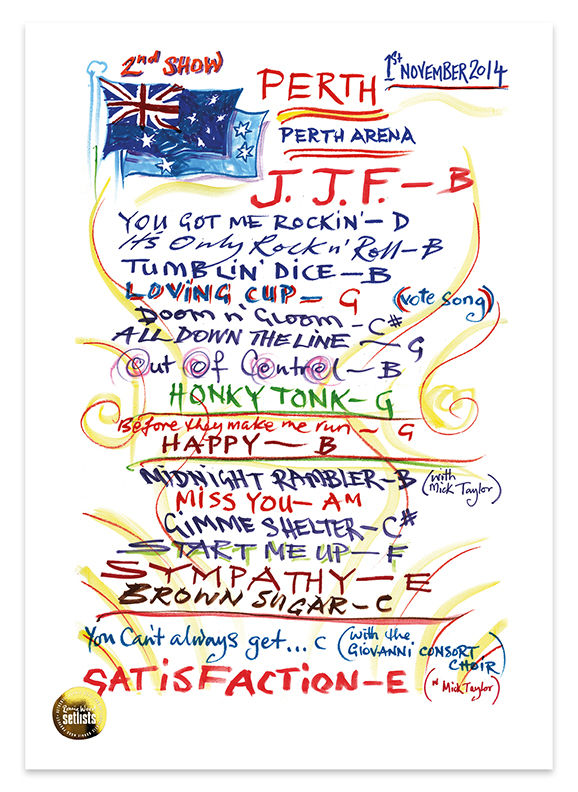 2nd SHOW
1st NOVEMBER 2014
PERTH
PERTH ARENA
J. J. F. – B
YOU GOT ME ROCKIN' – D
It's Only Rock n' Roll – B
TUMBLIN' DICE – B
LOVING CUP – G (vote song)
DOOM n' GLOOM – C#
ALL DOWN THE LINE – G
Out Of Control – B
HONKY TONK – G
Before they make me run – G
HAPPY – B
MIDNIGHT RAMBLER – B (with Mick Taylor)
MISS YOU – AM
GIMME SHELTER – C#
START ME UP – F
SYMPATHY – E
BROWN SUGAR – C
You Can't always get... C (with the GIOVANNI CONSORT CHOIR)
SATISFACTION – E (" Mick Taylor)
Ronnie Wood
setlists